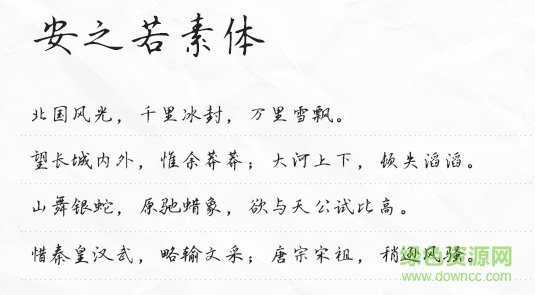 安之若素体
北国风光，千里冰封，万里雪飘。
望长城内外，惟余莽莽；大河上下，顿失滔滔。
山舞银蛇，原驰蜡象，欲与天公试比高。
惜秦皇汉武，略输文采；唐宗宋祖，稍逊风骚。
绿色资源网
www.downcc.com